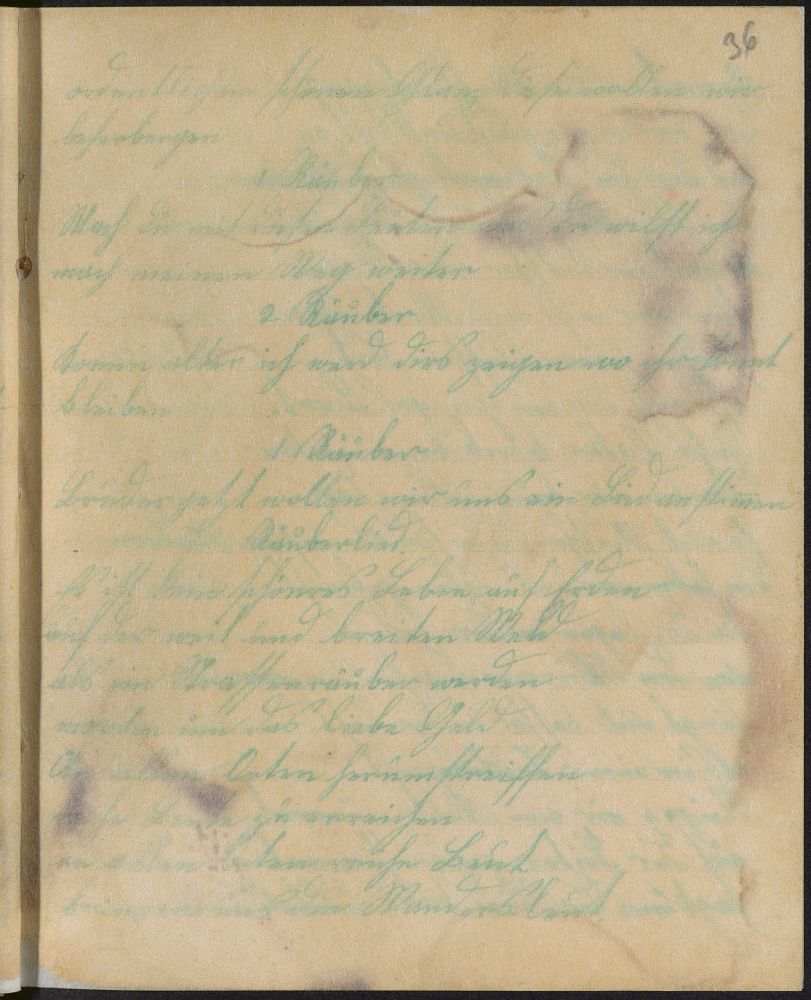 36
ordentlichen schönen Platz diese wollen wir
beherbergen
1 Räuber
Mach du mit diesen Leuten was du willst ich
mach meinen Weg weiter
2 Räuber
komm alter ich werd dirs zeigen wo ihr könnt
bleiben
1 Räuber
Brüder jetzt wollen wir uns ein Lied anstimmen
Räuberlied.
Es ist kein schönres Leben auf Erden
auf der weit und breiten Welt
als ein Strassenräuber werden
morden um das liebe Geld
An allen Orten herumstreiffen
zu erreichen
an allen Orten reiche Beut
bringen uns die Wandersleut